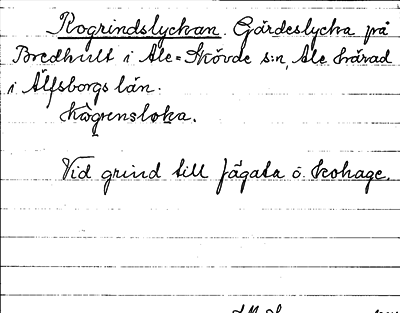 Kogrindslyckan. Gärdeslycka på
Bredhult i Ale=Skövde s:n, Ale härad
i Älfsborgs län.
Vid grind till fägata o. kohage.